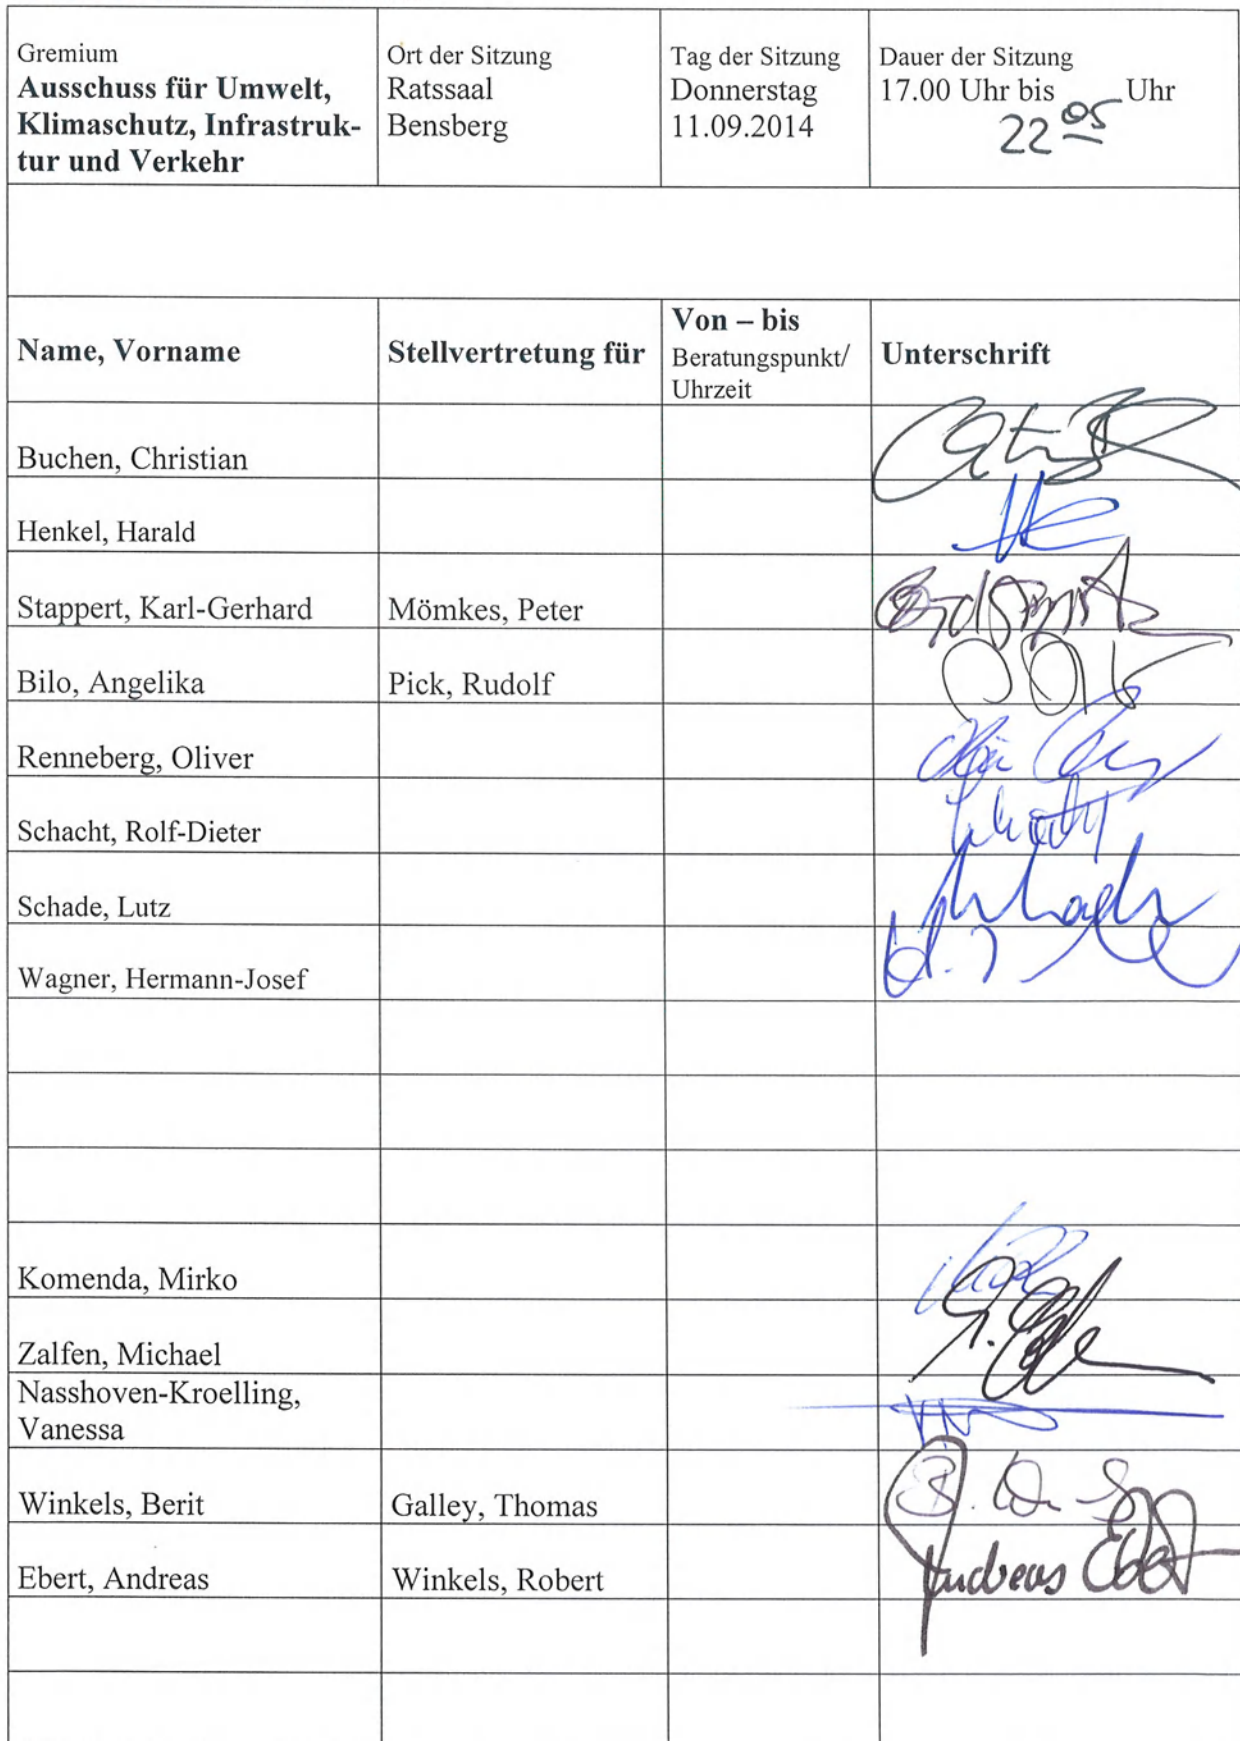 Gremium
Ausschuss für Umwelt,
Klimaschutz, Infrastruk-
tur und Verkehr
Ort der Sitzung
Ratssaal
Bensberg
Tag der Sitzung
Donnerstag
11.09.2014
Dauer der Sitzung
17.00 Uhr bis 22 05 Uhr
Name, Vorname
Stellvertretung für
Von – bis
Beratungspunkt/
Uhrzeit
Unterschrift
Buchen, Christian
Henkel, Harald
Stappert, Karl-Gerhard Mömkes, Peter
Bilo, Angelika Pick, Rudolf
Renneberg, Oliver
Schacht, Rolf-Dieter
Schade, Lutz
Wagner, Hermann-Josef
Komenda, Mirko
Zalfen, Michael
Nasshoven-Kroelling,
Vanessa
Winkels, Berit Galley, Thomas
Ebert, Andreas Winkels, Robert Andreas Ebert